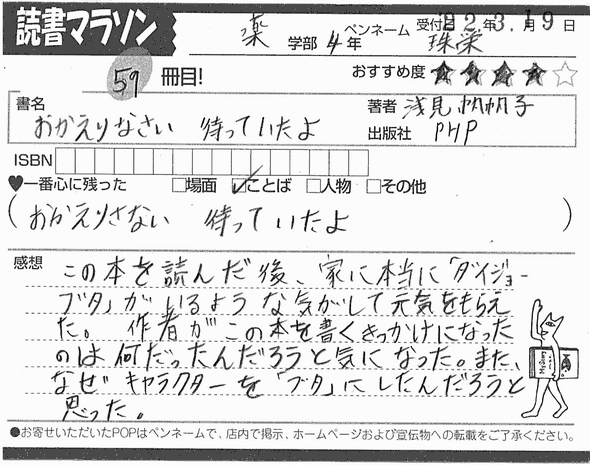 読書マラソン
薬 学部 4年 ペンネーム 珠栄 受付 22年3.月19日
59 冊目! おすすめ度 ★★★★☆
書名 おかえりなさい 待っていたよ
著者 浅見帆帆子
出版社 PHP
ISBN
♥一番心に残った □場面 ☑ことば □人物 □その他
(おかえりさない 待っていたよ)
感想 この本を読んだ後、家に本当に「ダイジョー
ブタ」がいるような気がして元気をもらえ
た。作者がこの本を書くきっかけになった
のは何だったんだろうと気になった。また、
なぜキャラクターを「ブタ」にしたんだろうと
思った。
●お寄せいただいたPOPはペンネームで、店内で掲示、ホームページおよび宣伝物への転載をご了承ください。